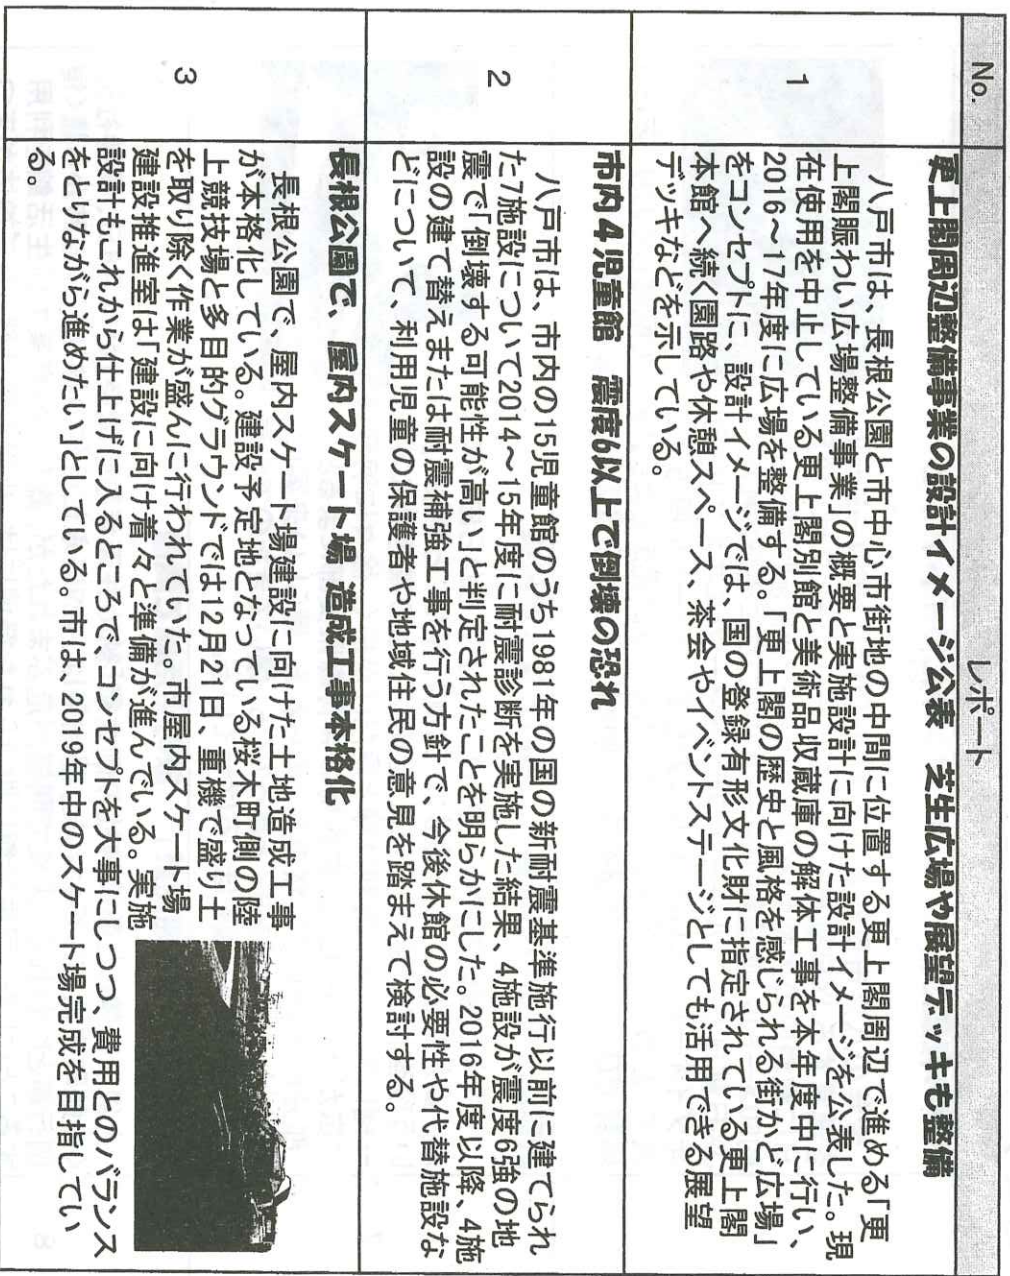 No.
レポート
1
更上閣周辺整備事業の設計イメージ公表　芝生広場や展望デッキも整備
八戸市は、長根公園と市中心市街地の中間に位置する更上閣周辺で進める「更
上閣賑わい広場整備事業」の概要と実施設計に向けた設計イメージを公表した。現
在使用を中止している更上閣別館と美術品収蔵庫の解体工事を本年度中に行い、
2016～17年度に広場を整備する。「更上閣の歴史と風格を感じられる街かど広場」
をコンセプトに、設計イメージでは、国の登録有形文化財に指定されている更上閣
本館へ続く園路や休憩スペース、茶会やイベントステージとしても活用できる展望
デッキなどを示している。
2
市内４児童館　震度6以上で倒壊の恐れ
八戸市は、市内の15児童館のうち1981年の国の新耐震基準施行以前に建てられ
た7施設について2014～15年度に耐震診断を実施した結果、4施設が震度6強の地
震で「倒壊する可能性が高い」と判定されたことを明らかにした。2016年度以降、4施
設の建て替えまたは耐震補強工事を行う方針で、今後休館の必要性や代替施設な
どについて、利用児童の保護者や地域住民の意見を踏まえて検討する。
3
長根公園で、屋内スケート場 造成工事本格化
長根公園で、屋内スケート場建設に向けた土地造成工事
が本格化している。建設予定地となっている桜木町側の陸
上競技場と多目的グラウンドでは12月21日、重機で盛り土
を取り除く作業が盛んに行われていた。市屋内スケート場
建設推進室は「建設に向け着々と準備が進んでいる。実施
設計もこれから仕上げに入るところで、コンセプトを大事にしつつ、費用とのバランス
をとりながら進めたい」としている。市は、2019年中のスケート場完成を目指してい
る。